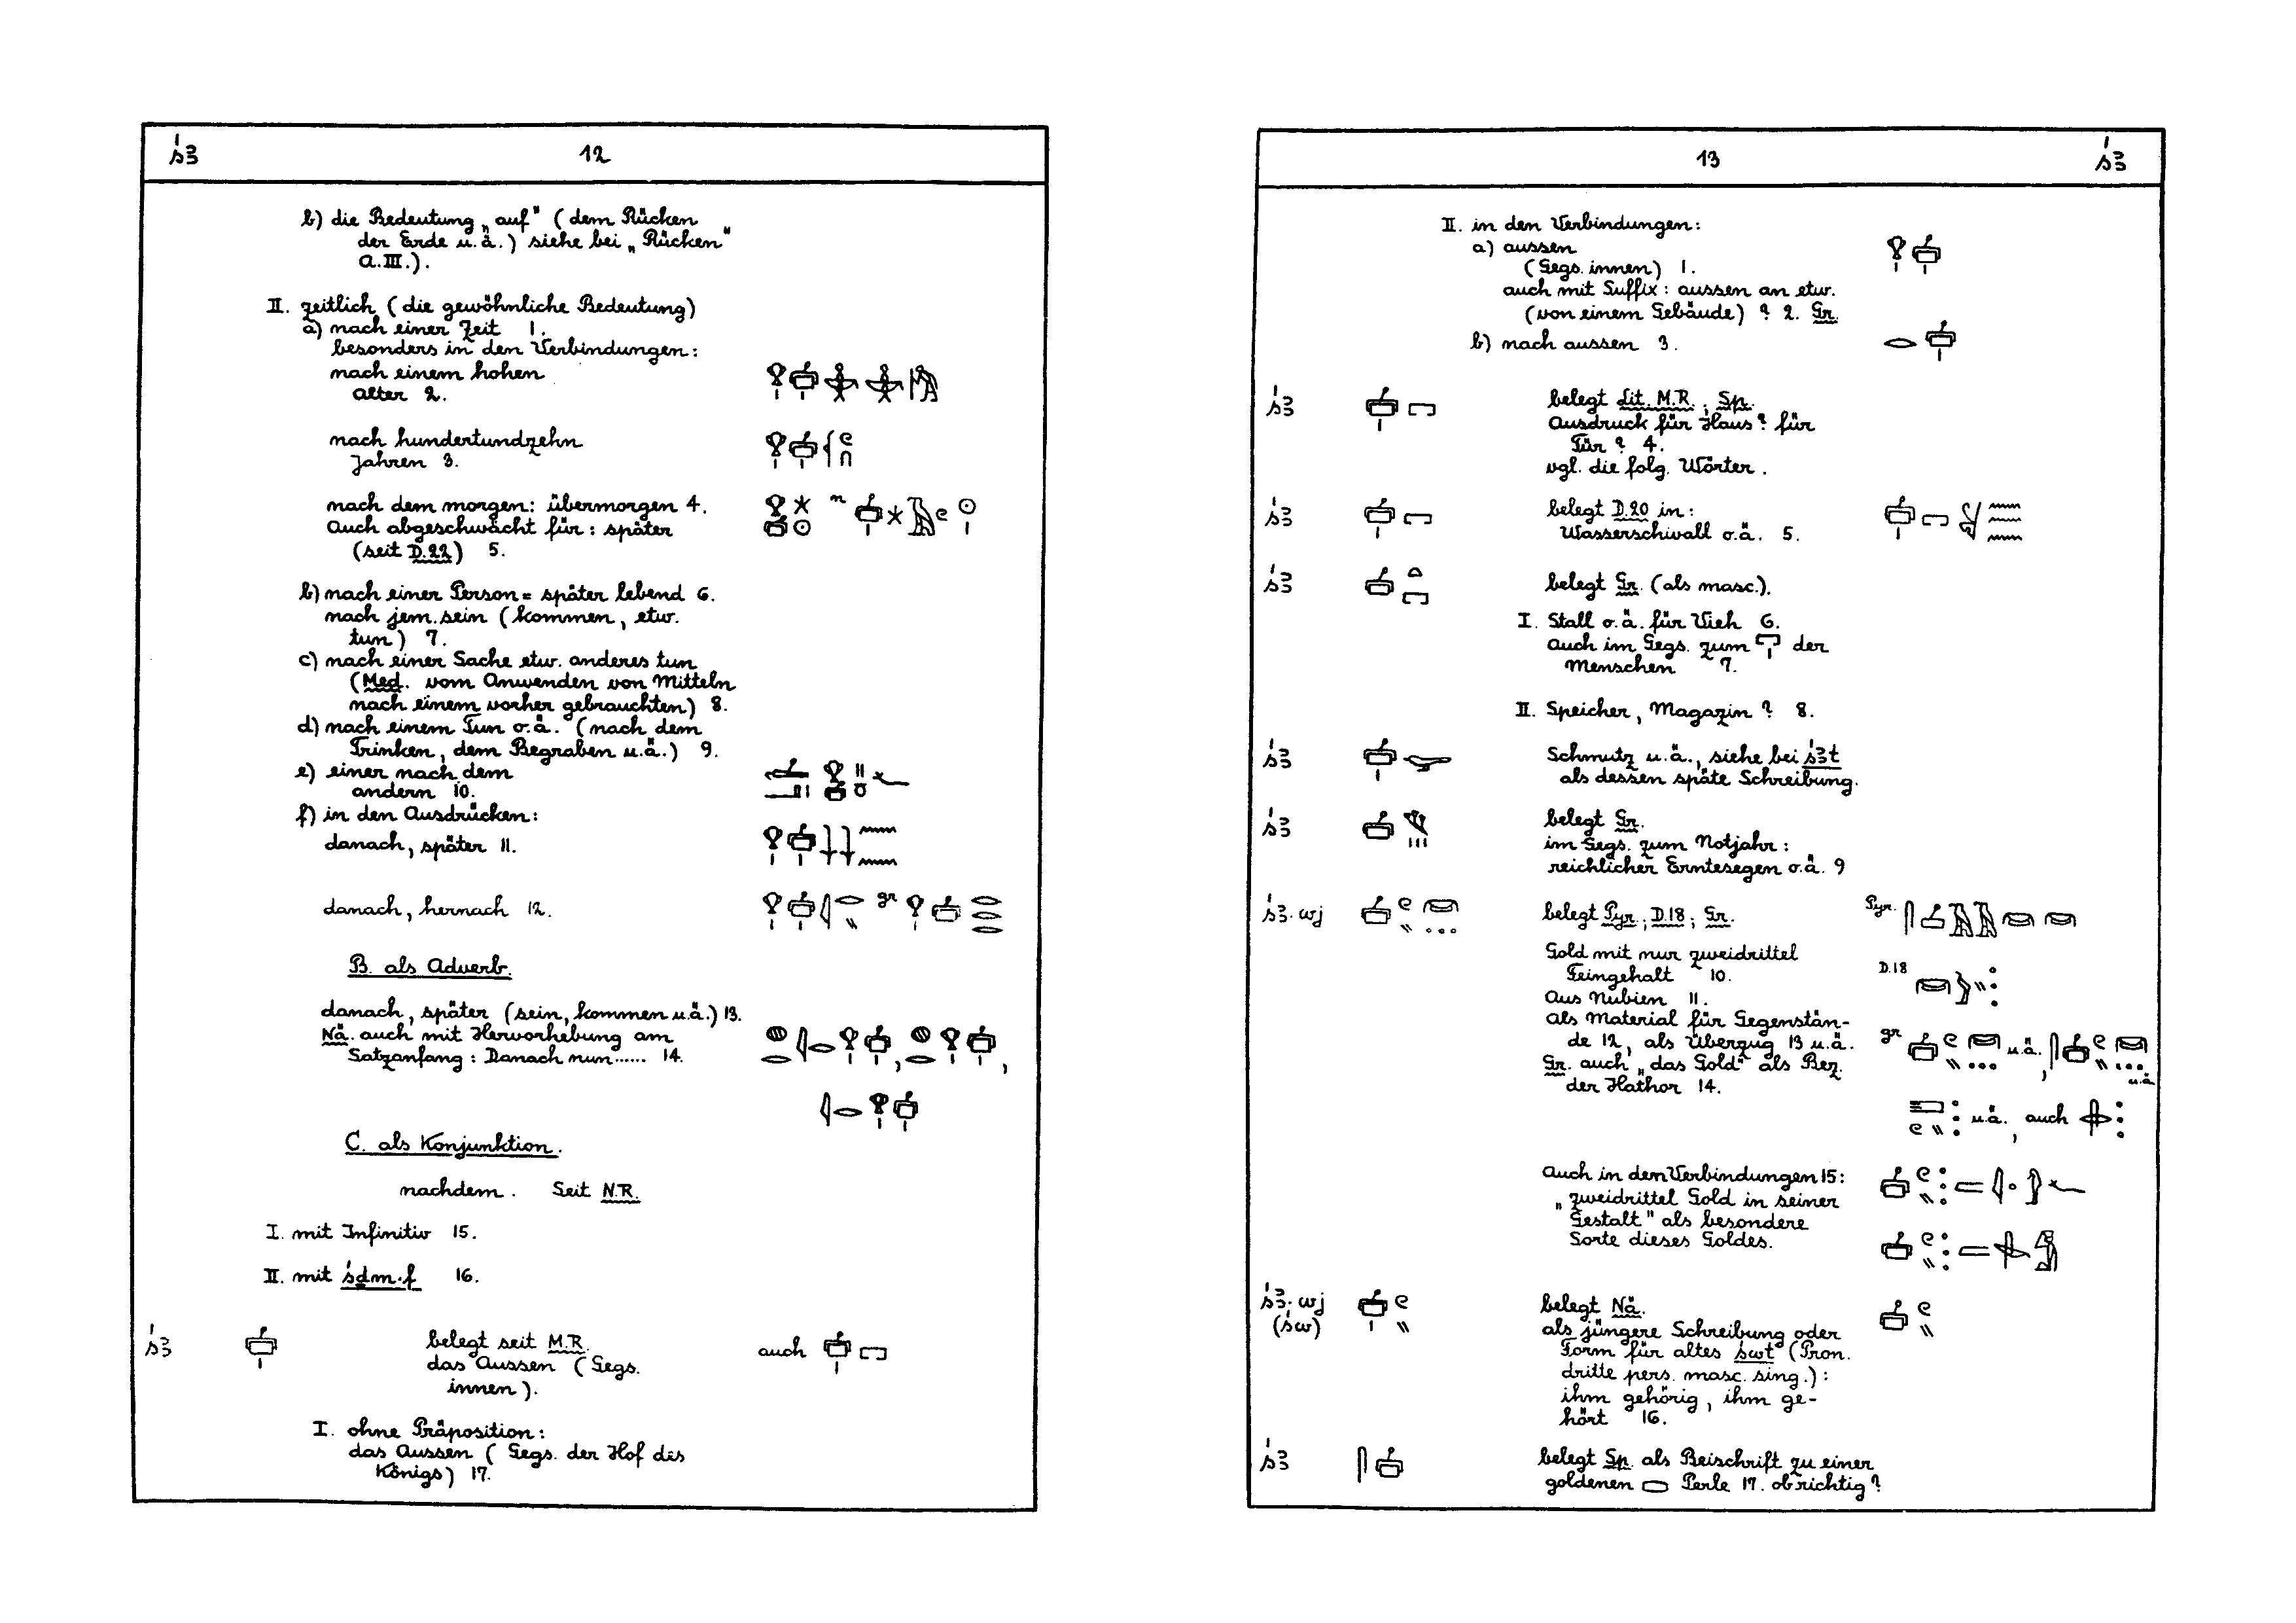 ś3 12
b) die Bedeutung „auf" (dem Rücken
der Erde u.ä.) siehe bei „Rücken"
A.III.).
II. zeitlich (die gewöhnliche Bedeutung)
a) nach einer Zeit 1.
besonders in den Verbindungen:
nach einem hohen
Alter 2.
nach hundertundzehn
Jahren 3.
nach dem morgen: übermorgen 4.
Auch abgeschwächt für: später
(seit D.22) 5.
b) nach einer Person = später lebend 6.
nach jem. sein (kommen, etw.
tun) 7.
c) nach einer Sache etw. anderes tun
(Med. vom Anwenden von Mitteln
nach einem vorher gebrauchten) 8.
d) nach einem Tun o.ä. (nach dem
Trinken, dem Begraben u.ä.) 9.
e) einer nach dem
andern 10.
f) in den Ausdrücken:
danach, später 11.
danach, hernach 12. gr
B. als Adverb.
danach, später (sein, kommen u.ä.) 13.
Nä. auch mit Hervorhebung am
Satzanfang: Danach nun...... 14.
C. als Konjunktion.
nachdem. Seit N.R.
I. mit Infinitiv 15.
II. mit śdm.f 16.
ś3 belegt seit M.R. auch
das Aussen (Gegs.
innen).
I. ohne Präposition:
das Aussen (Gegs. der Hof des
Königs) 17.
13 ś3
II. in den Verbindungen:
a) aussen
(Gegs. innen) 1.
auch mit Suffix: aussen an etw.
(von einem Gebäude) ? 2. Gr.
b) nach aussen 3.
ś3 belegt Lit. M.R.; Sp.
Ausdruck für Haus? für
Tür? 4.
vgl. die folg. Wörter.
ś3 belegt D.20 in:
Wasserschwall o.ä. 5.
ś3 belegt Gr. (als masc.).
I. Stall o.ä. für Vieh 6.
auch im Gegs. zum der
Menschen 7.
II. Speicher, Magazin? 8.
ś3 Schmutz u.ä., siehe bei ś3t
als dessen späte Schreibung.
ś3 belegt Gr.
im Gegs. zum Notjahr:
reichlicher Erntesegen o.ä. 9
ś3.wj belegt Pyr.; D.18; Gr. Pyr.
Gold mit nur zweidrittel
Feingehalt 10. D.18
Aus Nubien 11.
als Material für Gegenstän-
de 12, als Überzug 13 u.ä. gr u.ä.,
Gr. auch „das Gold" als Bez. u.ä
der Hathor 14.
u.ä., auch
Auch in den Verbindungen 15:
„zweidrittel Gold in seiner
Gestalt" als besondere
Sorte dieses Goldes.
ś3.wj belegt Nä.
(św) als jüngere Schreibung oder
Form für altes śwt (Pron.
dritte pers. masc. sing.):
ihm gehörig, ihm ge-
hört 16.
ś3 belegt Sp. als Beischrift zu einer
goldenen Perle 17. ob richtig?